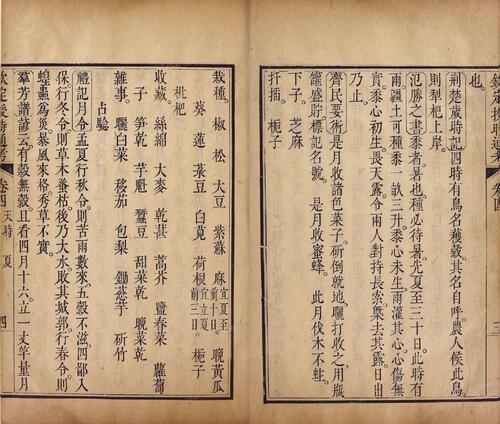 也。
荆楚歲時記四時有鳥名穫穀其名自呼農人候此鳥
則犁杷上岸。
氾勝之書黍者暑也種必待暑先夏至三十日此時有
雨疆土可種黍一畝三升黍心未生雨灌其心心傷無
實黍心初生畏天露令兩人對持長索槩去其露日出
乃止。
齊民要術是月收諸色菜子斫倒就地曬打收之用瓶
罐盛貯標記名號。是月收蜜蜂。此月伐木不蛀。
下子。芝麻
扦插。梔子
栽種。椒 松 大豆 紫蘇 麻宜夏至前十日。 晚黄瓜
葵 蓮 菉豆 白莧 荷根宜立夏前三日。 梔子
枇杷
收藏。絲綿 大麥 乾葚 蒿芥 鹽春菜 蘿蔔
子 笋乾 芋魁 蠶豆 甜菜乾 晚菜乾
雜事。曬白菜 移茄 包梨 鋤葱芋 斫竹
占驗
禮記月令孟夏行秋令則苦雨數來五穀不滋四鄙入
保行冬令則草木蚤枯後乃大水敗其城郭行春令則
蝗蟲為災暴風來格秀草不實。
羣芳譜諺云有穀無穀且看四月十六立一丈竿量月
欽定授時通考 卷四 天時 夏 四